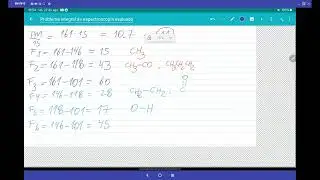 Problema integral de espectroscopía evaluada
PM = 161-15 = 10.7
15
F1 = 161-146 = 15 CH3
F2 = 161-118 = 43 CH3-CO , CH3CH2CH2
F3 = 161-101 = 60
F4 = 146-118 = 28 CH2-CH2 ,
F5 = 118-101 = 17 O-H
F6 = 146-101 = 45